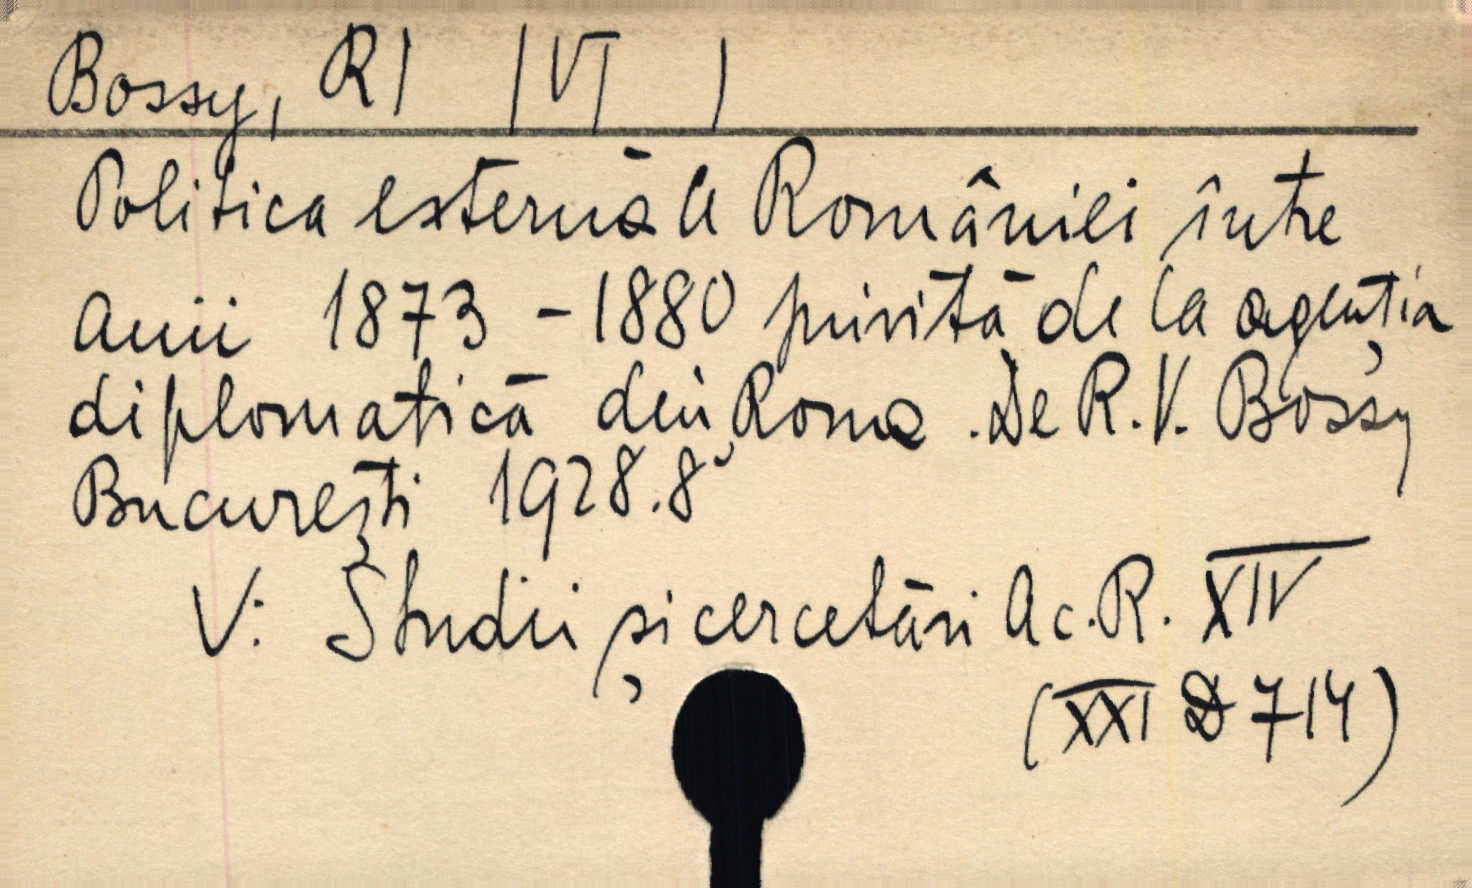 Bossy, R| |V| |
Politica externă a României între
anii 1873 - 1880 privită de la agenția
diplomatică din Roma. De R. V. Bossy
București 1928. 8°
V: Studii și cercetări Ac. R. XIV
(XXI D 714)